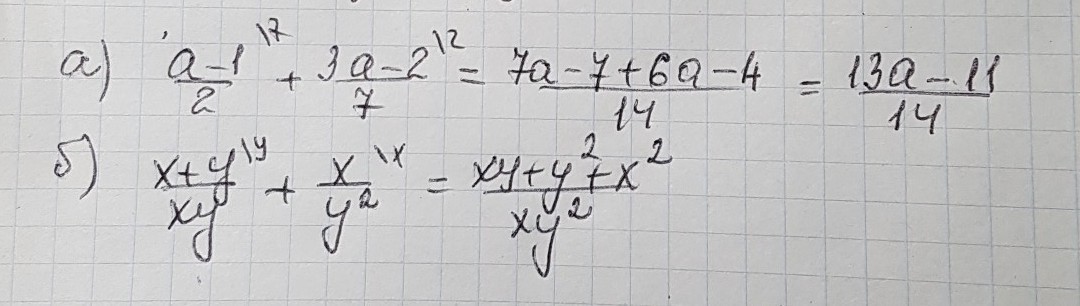 а) (a-1)/2 \7 + (3a-2)/7 \2 = (7a-7+6a-4)/14 = (13a-11)/14
б) (x+y)/xy \y + x/y² \x = (xy+y²+x²)/xy²